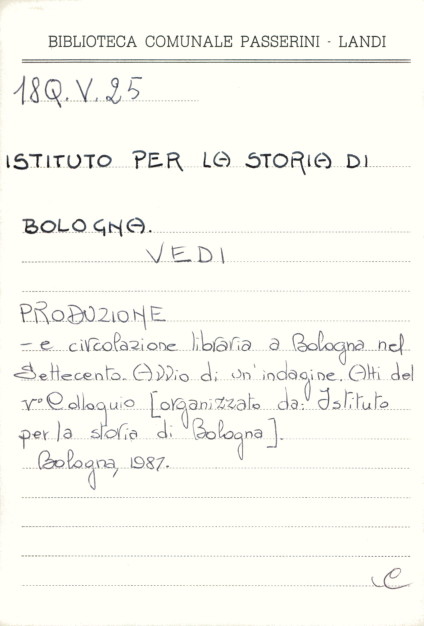 BIBLIOTECA COMUNALE PASSERINI - LANDI
18Q.V.25
ISTITUTO PER LA STORIA DI
BOLOGNA.
VEDI
PRODUZIONE
- e circolazione libraria a Bologna nel
Settecento. Avvio di un'indagine. Atti del
V° Colloquio [organizzato da: Istituto
per la storia di Bologna].
Bologna, 1987.